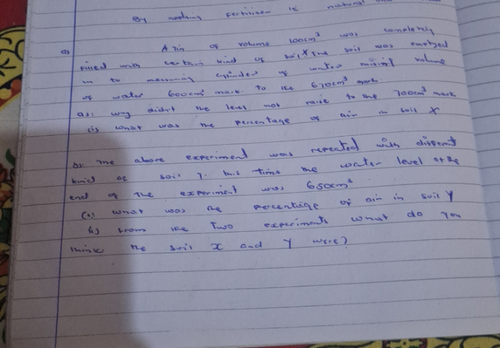 By making fertilizer is natural
Q) A tin of volume 100cm³ was completely
filled with certain kind of soil X the soil was emptied
in to measuring cylinder of water volume
of water 600cm³ raise to the 670cm³ mark
a)i) why didn't the level not raise to the 700cm³ mark
(ii) what was the percentage of air in soil X
b) The above experiment was repeated with different
kind of soil Y. this time the water level at the
end of the experiment was 650cm³
(i) what was the percentage of air in soil Y
(ii) from the two experiments what do you
think the soil X and Y were?